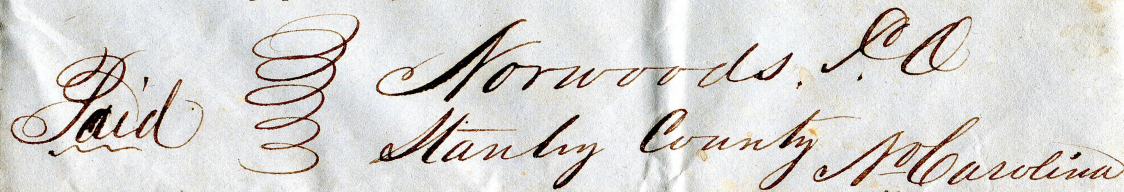 Paid
Norwoods. P.O
Stanly County No Carolina